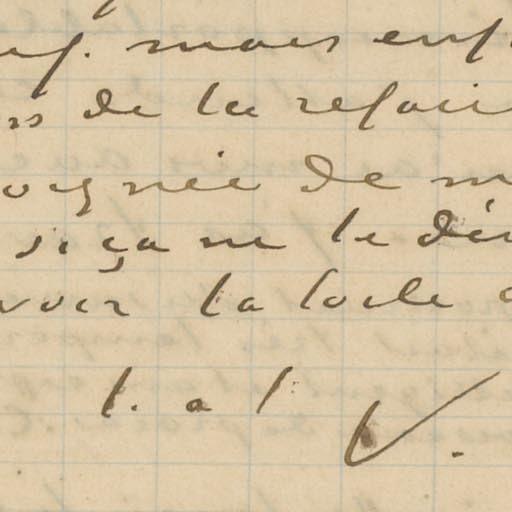 mais enf
de la refaire
oignée de m
si ça ne te dér
voir la toile
t. a t
V.